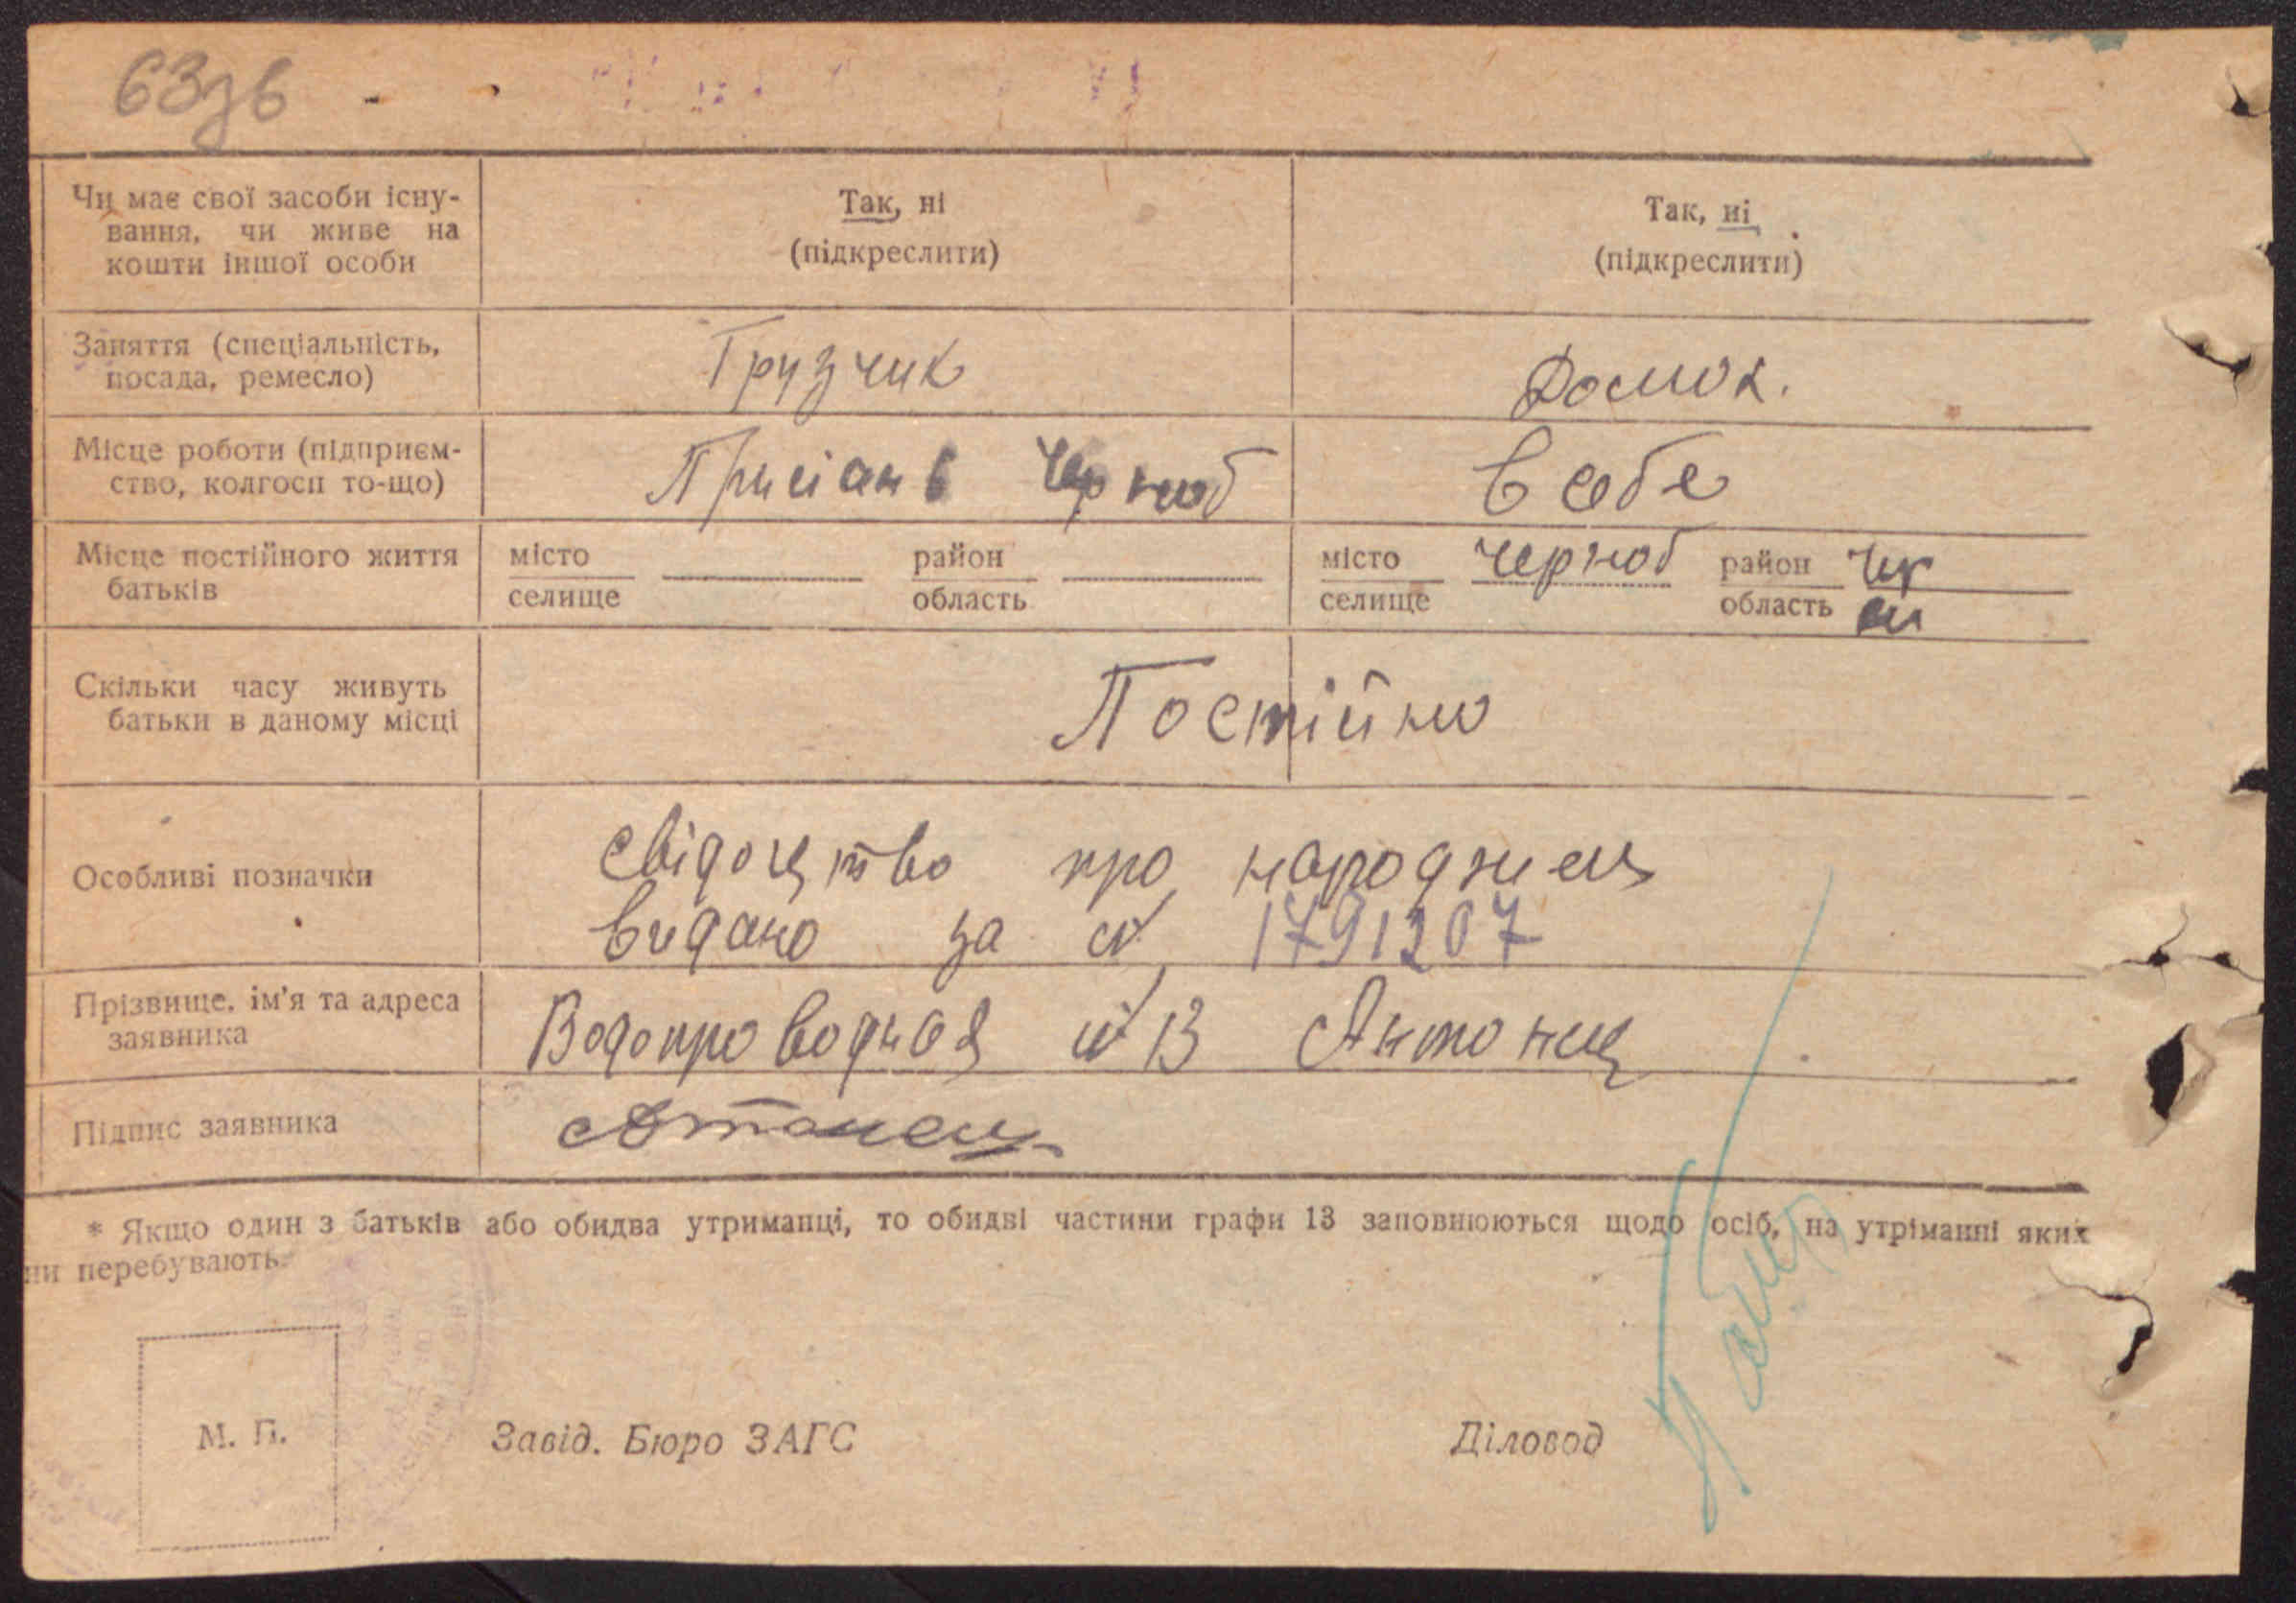 63зв
Чи має свої засоби існу-
вання, чи живе на
кошти іншої особи
Так, ні
(підкреслити)
Так, ні
(підкреслити)
Заняття (спеціальність,
посада, ремесло)
Грузчик
Домох.
Місце роботи (підприєм-
ство, колгосп то-що)
Черноб
в себе
Місце постійного життя
батьків
місто
селище
район
область
місто
селище
черноб
район
область
Чер
Скільки часу живуть
батьки в даному місці
Постійно
Особливі позначки
свідоцтво про
видано за № 1791207
Прізвище, ім'я та адреса
заявника
Водопроводная № 13 Антонец
Підпис заявника
* Якщо один з батьків або обидва утриманці, то обидві частини графи 13 заповнюються щодо осіб, на утріманні яких
ни перебувають.
М. П.
Завід. Бюро ЗАГС
Діловод